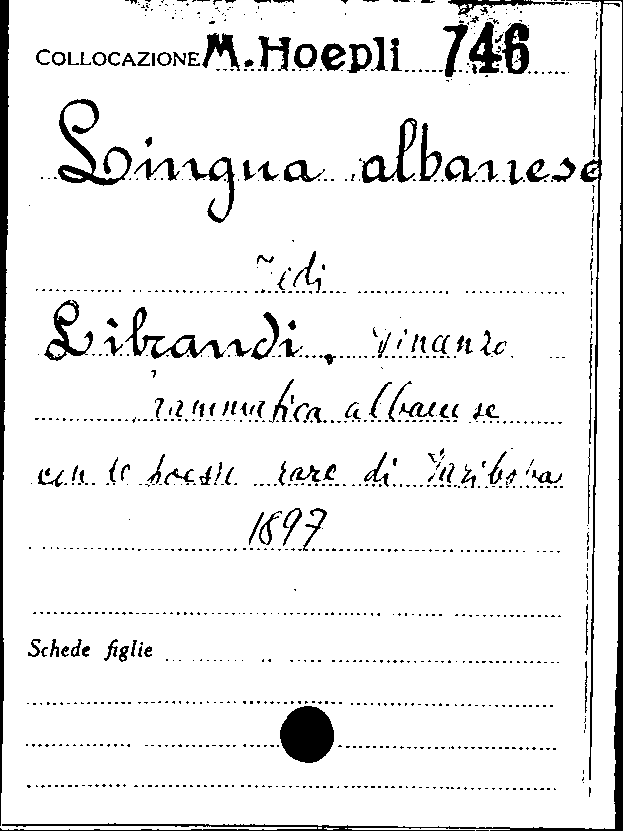 COLLOCAZIONE M. Hoepli 746
Lingua albanese
Vedi
Librandi, Vinanzo
Grammatica albanese
con le poesie rare di Variboba
1897
Schede figlie